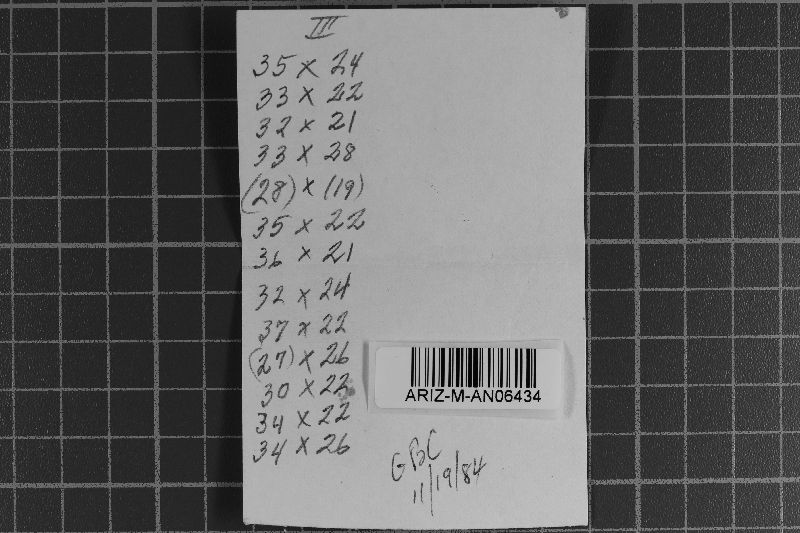 III
35 x 24
33 x 22
32 x 21
33 x 28
(28) x (19)
35 x 22
36 x 21
32 x 24
37 x 22
(27) x 26
30 x 22
34 x 22
34 x 26
ARIZ-M-AN06434
GBC
11/19/84